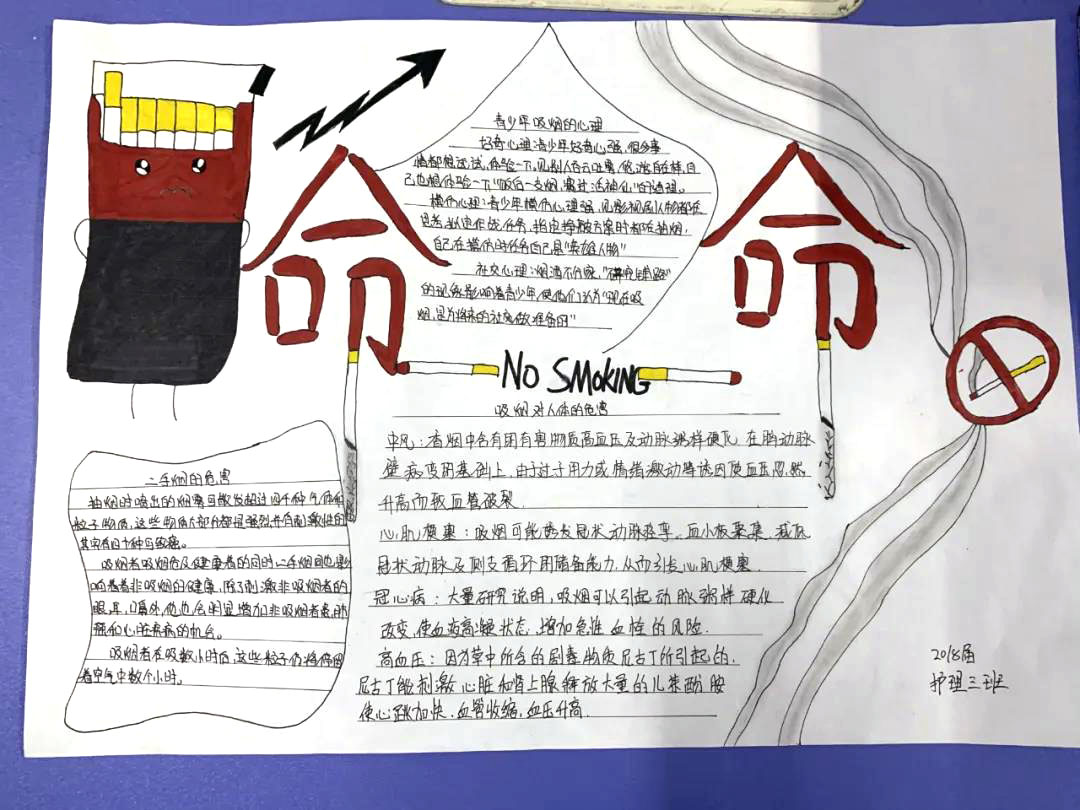 命
命
青少年吸烟的心理
好奇心理:青少年好奇心强,很多事
情都想试试,体验一下。见别人吞云吐雾,悠然自在样,自
己也想体验一下"饭后一支烟,赛过活神仙"的道理。
模仿心理:青少年模仿心理强,见影视剧人物都在
思考,拟定作战任务,指定抢救方案时都在抽烟,
自己在模仿时任务自己是"英雄人物"
社交心理:烟酒不分家,
的现象影响着青少年,使他们认为"现在吸
烟,是为将来的社交做准备的"
NO SMOKING
吸烟对人体的危害
中风:香烟中含有因有害物质高血压及动脉粥样硬化 在脑动脉
壁病变的基础上,由于过于用力或情绪激动等诱因使血压忽然
升高而致血管破裂.
心肌梗塞:吸烟可能诱发冠状动脉痉挛,血小板聚集,减低
冠状动脉及侧支循环用储备能力,从而引发心肌梗塞.
冠心病:大量研究说明,吸烟可以引起动脉粥样硬化
改变,使血液高凝状态,增加急性血栓的风险.
高血压:因为草中所含的剧毒物质尼古丁所引起的.
尼古丁能刺激心脏和肾上腺释放大量的儿茶酚胺
使心跳加快,血管收缩,血压升高.
二手烟的危害
抽烟时喷出的烟雾可散发超过四千种气体和
粒子物质,这些物质大部分都是强烈并有刺激性的
其实有四十种可致癌。
吸烟者吸烟危及健康着的同时,二手烟同也影
响着着非吸烟的健康,除了刺激非吸烟者的
眼,耳,口鼻外,他也会明显增加非吸烟者患肺
癌和心脏疾病的机会。
吸烟者在吸数小时后,这些粒子仍将停留
着空气中数个小时。
2018届
护理三班